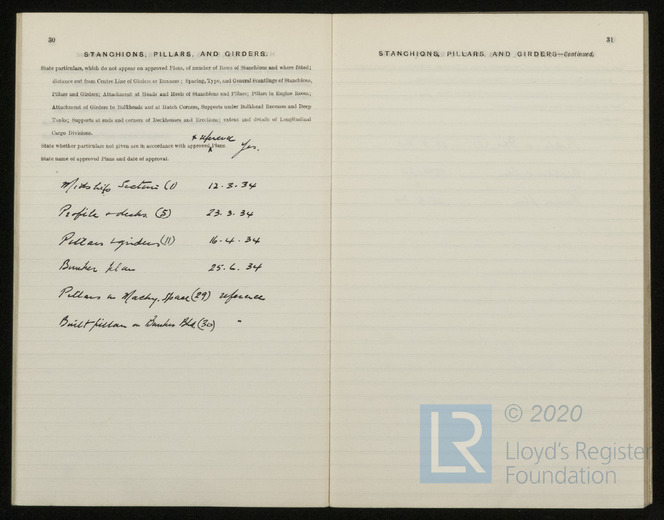 30
STANCHIONS, PILLARS, AND GIRDERS.
State particulars, which do not appear on approved Plans, of number of Rows of Stanchions and where fitted;
distance out from Centre Line of Girders or Runners; Spacing, Type, and General Scantlings of Stanchions,
Pillars and Girders; Attachment at Heads and Heels of Stanchions and Pillars; Pillars in Engine Room;
Attachment of Girders to Bulkheads and at Hatch Corners, Supports under Bulkhead Recesses and Deep
Tanks; Supports at ends and corners of Deckhouses and Erections; extent and details of Longitudinal
Cargo Divisions.
+ reference
State whether particulars not given are in accordance with approved Plans. Yes.
State name of approved Plans and date of approval.
Midships Section (1) 12.3.34
Profile + decks (5) 23.3.34
Pillars + girders (11) 16.4.34
Bunker plan 25.6.34
Pillars in Machy. Space (29) reference
Built pillars in Bunker Bhd (30) "
31
STANCHIONS, PILLARS, AND GIRDERS—Continued.
LR
© 2020
Lloyd's Register
Foundation